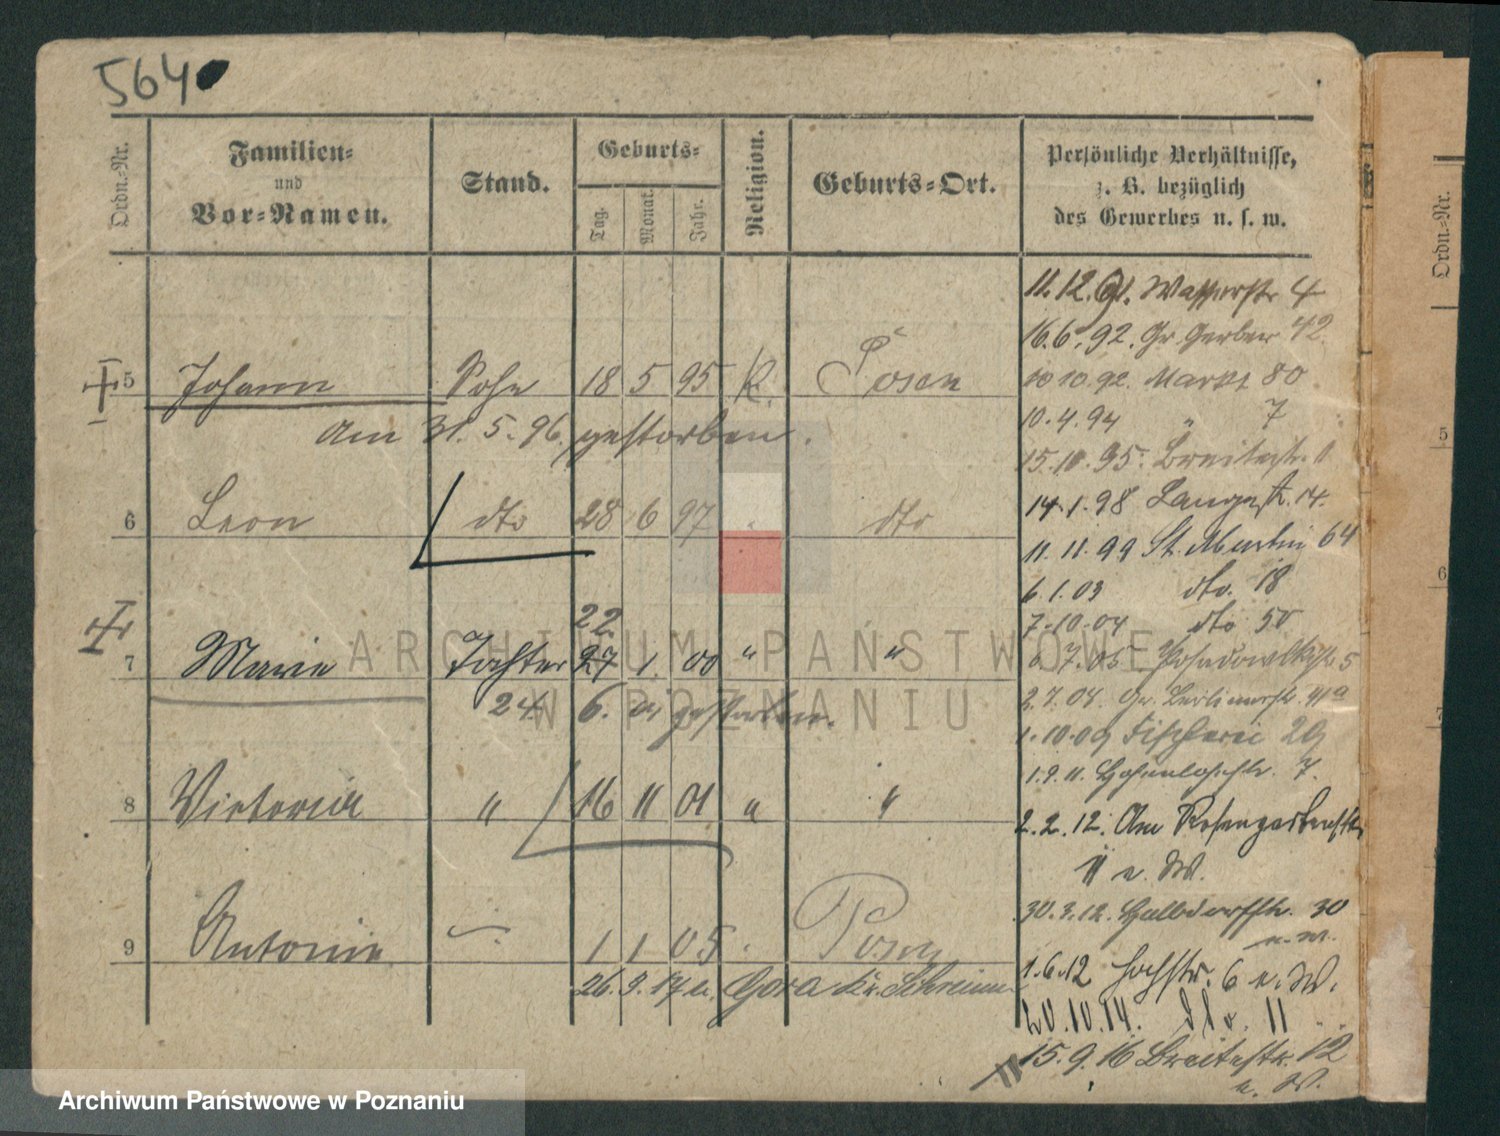 5640
Ordn.-Nr.
Familien-
und
Vor-Namen.
Stand.
Geburts-
Tag.
Monat.
Jahr.
Religion.
Geburts-Ort.
Persönliche Verhältnisse,
z. B. bezüglich
des Gewerbes u. s. w.
Ordn.-Nr.
5 Johann Sohn 18 5 95 K. Posen
am 31. 5. 96 gestorben.
6 Leon dto 28 6 97 dto
22
7 Marie Tochter 27 1. 00 " "
24. 6. 01 gestorben.
8 Victoria " 16 11 01 " "
9 Antonie 1 1 05 Posen
26. 9. 17 n. Gora Kr. Schrimm
11. 12. 91. Wasserstr 4
16. 6. 92. Gr. Gerber 42.
10 10. 92. Markt 80
10. 4. 94 " 7
15. 10. 95. Breitestr.
14. 1. 98 Langestr. 14.
11. 11. 99 St. Martin 64
6. 1. 03 dto. 18
7. 10. 04 dto 50
7. 05 Posadowskystr 5
2. 7. 04. Gr. Berlinerstr.
1. 10. 09 Fischerei 29
1. 9. 11. Hohenlohestr. 7.
2. 2. 12. Am Rosengarten
11 n. W.
30. 3. 12. Halbdorfstr. 30
n. W.
1. 6. 12 Hochstr. 6 n. W.
20. 10. 14. dto. 11
15. 9. 16 Breitestr. 12
n. W.
5
6
ARCHIWUM PAŃSTWOWE
W POZNANIU
Archiwum Państwowe w Poznaniu